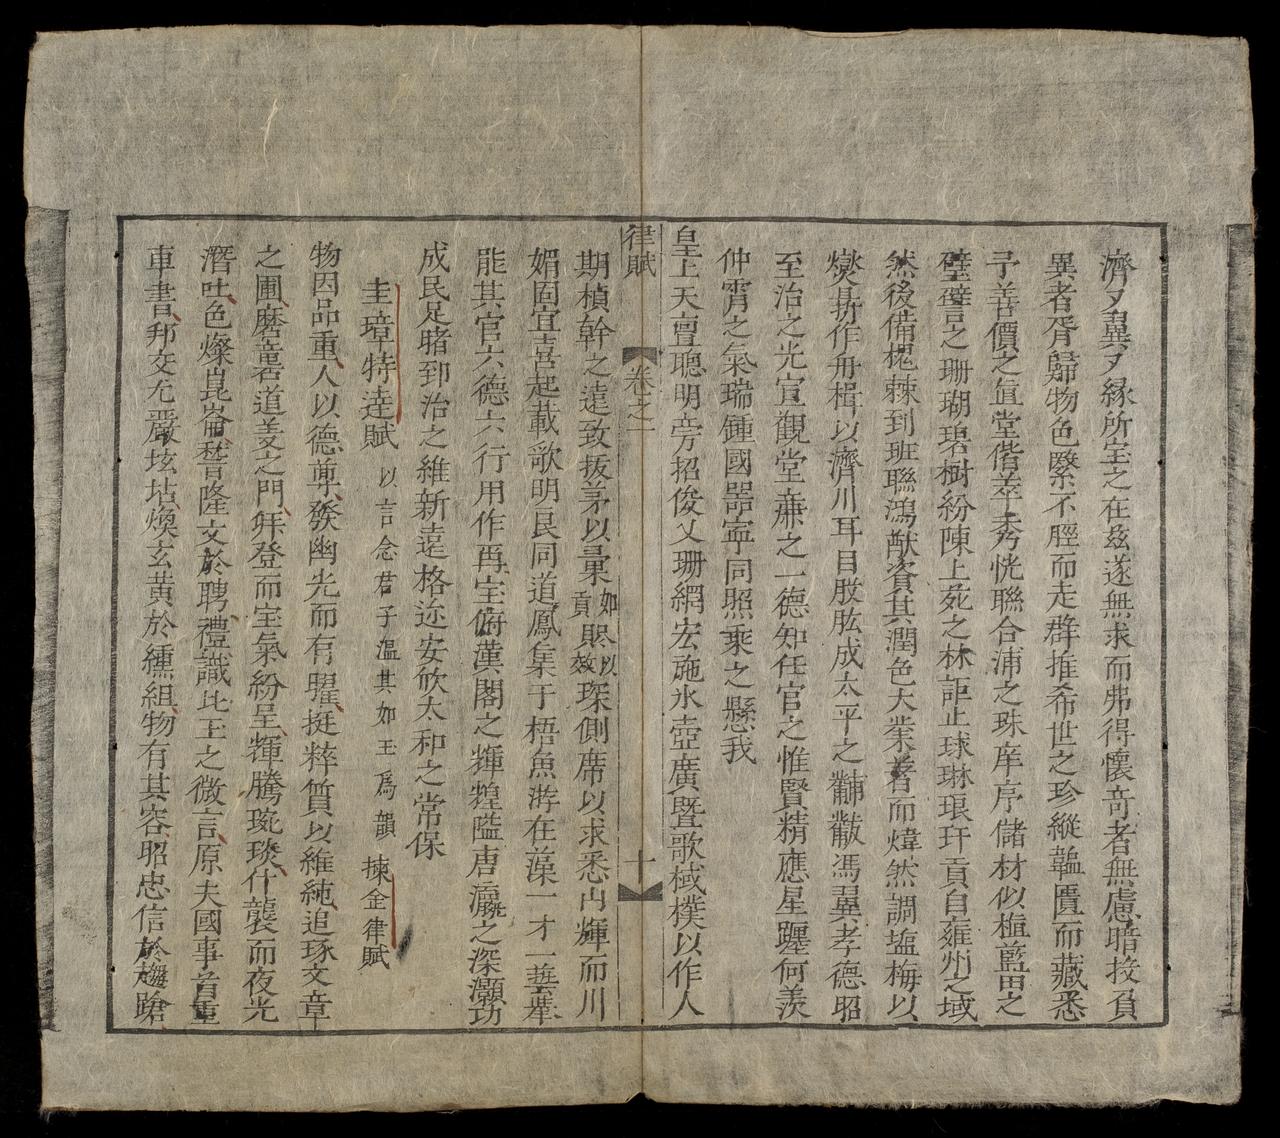 濟〻翼〻緣所宝之在兹遂無求而弗得懷奇者無慮暗投負
異者胥歸物色繄不脛而走群推希世之珍縱韞匱而藏悉
予善價之值堂偕萃秀恍聯合浦之珠庠序儲材似植藍田之
璧譬之珊瑚碧樹紛陳上苑之林詎止球琳琅玕貢自雍州之域
然後備槐棘列班聯鴻猷資其潤色大業著而煒然調塩梅以
爕鼎作舟楫以濟川耳目股肱成太平之黼黻馮翼孝德昭
至治之光宣觀堂亷之一德知任官之惟賢精應星躔何羡
仲霄之氣瑞鍾國器寕同照乘之懸我
皇上天亶聰明旁招俊乂珊網宏施氷壺廣暨歌棫樸以作人
律賦 卷之二 十
期楨幹之遠致拔茅以彙如貢賝以效琛側席以求悉山輝而川
媚固宜喜起載歌明良同道鳳集于梧魚游在藻一才一藝羣
能其官六德六行用作再宝俯漢閣之輝煌隘唐瀛之深灝功
成民足睹郅治之維新遠格迩安欣太和之常保
圭璋特達賦 以言念君子溫其如玉爲韻 揀金律賦
物因品重人以德尊發幽光而有曜挺粹質以維純追琢文章
之圃磨礱道義之門頖登而宝氣紛呈輝騰琬琰什襲而夜光
潛吐色燦崑崙瞀隆文於聘禮識比玉之微言原夫國事首重
車書邦交尤嚴坫坫煥玄黃於纁組物有其容昭忠信於趨蹌